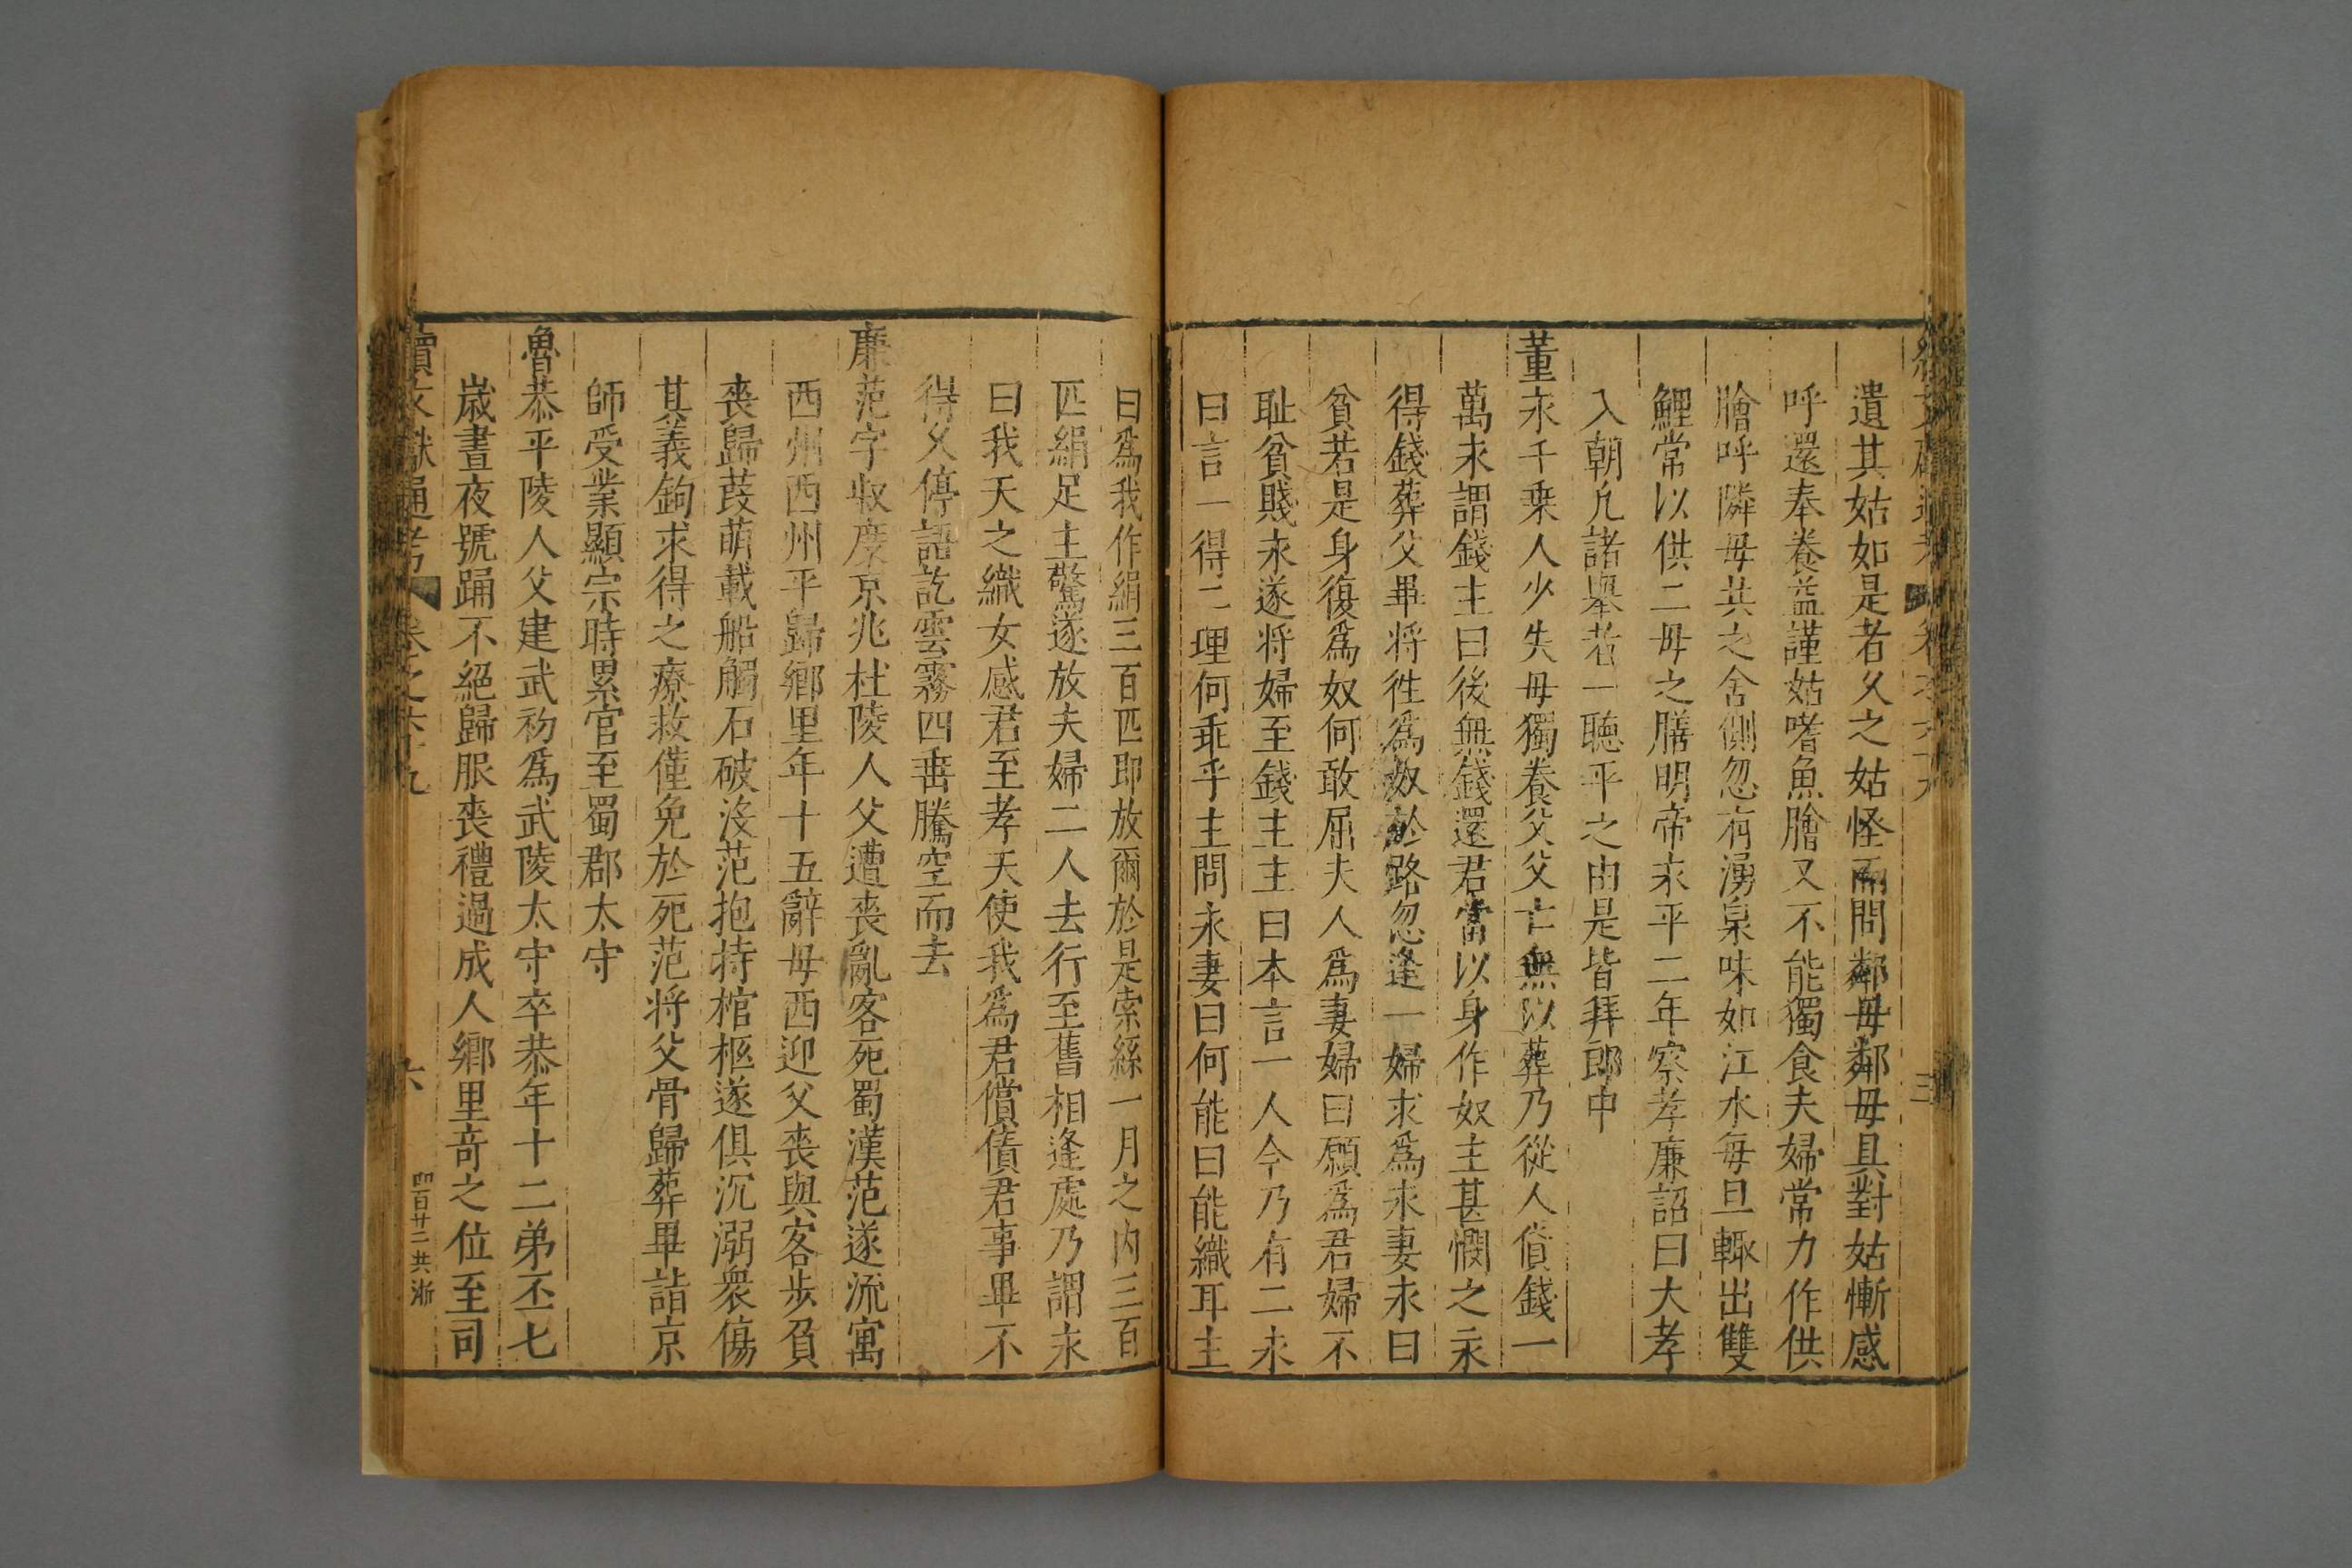 遺其姑如是者久之姑怪而問鄰母鄰母具對姑慚感
呼還奉養益謹姑嗜魚膾又不能獨食夫婦常力作供
膾呼隣母共之舍側忽有湧泉味如江水每旦輙出雙
鯉常以供二母之膳明帝永平二年察孝廉詔曰大孝
入朝凡諸舉者一聽平之由是皆拜郎中
董永千乗人少失母獨養父父亡無以葬乃從人貸錢一
萬永謂錢主曰後無錢還君當以身作奴主甚憫之永
得錢葬父畢將徃爲奴於路忽逢一婦求爲永妻永曰
貧若是身復爲奴何敢屈夫人爲妻婦曰願爲君婦不
耻貧賤永遂將婦至錢主主曰本言一人今乃有二永
曰言一得二理何乖乎主問永妻曰何能曰能織耳主
曰爲我作絹三百匹即放爾於是索絲一月之内三百
匹絹足主驚遂放夫婦二人去行至舊相逢處乃謂永
曰我天之織女感君至孝天使我爲君償債君事畢不
得久停語訖雲霧四垂騰空而去
廉范字叔度京兆杜陵人父遭喪亂客死蜀漢范遂流寓
西州西州平歸鄉里年十五辭母西迎父喪與客步負
喪歸葭萌載船觸石破没范抱持棺柩遂俱沉溺衆傷
其義鉤求得之療救僅免於死范將父骨歸葬畢詣京
師受業顯宗時累官至蜀郡太守
魯恭平陵人父建武初爲武陵太守卒恭年十二弟丕七
歳晝夜號踊不絕歸服喪禮過成人鄉里竒之位至司
續文獻通考 卷之六十九 六
四百廿二共浙